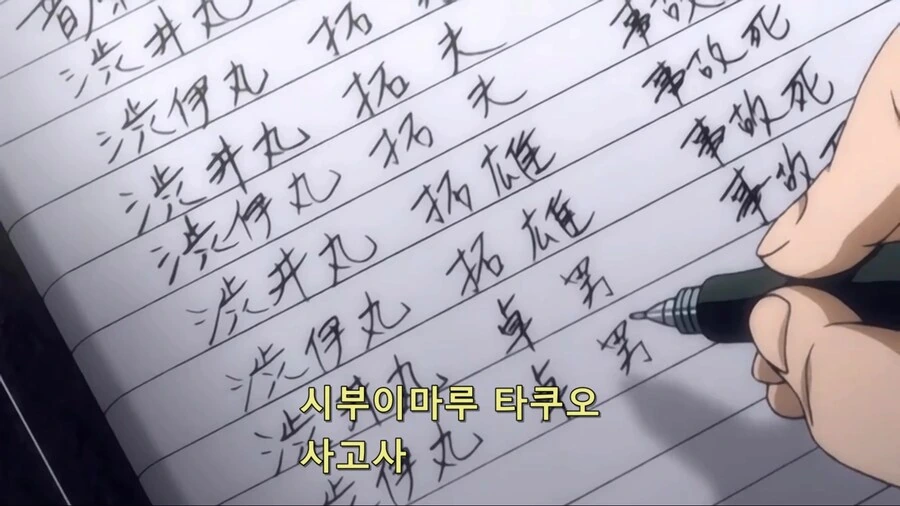 渋井丸
渋伊丸 拓
渋井丸 拓夫 事故
渋伊丸 拓夫 事故死
渋井丸 拓雄 事故死
渋伊丸 拓雄 事故死
渋井丸 卓男
渋伊丸 卓男
시부이마루 타쿠오
사고사